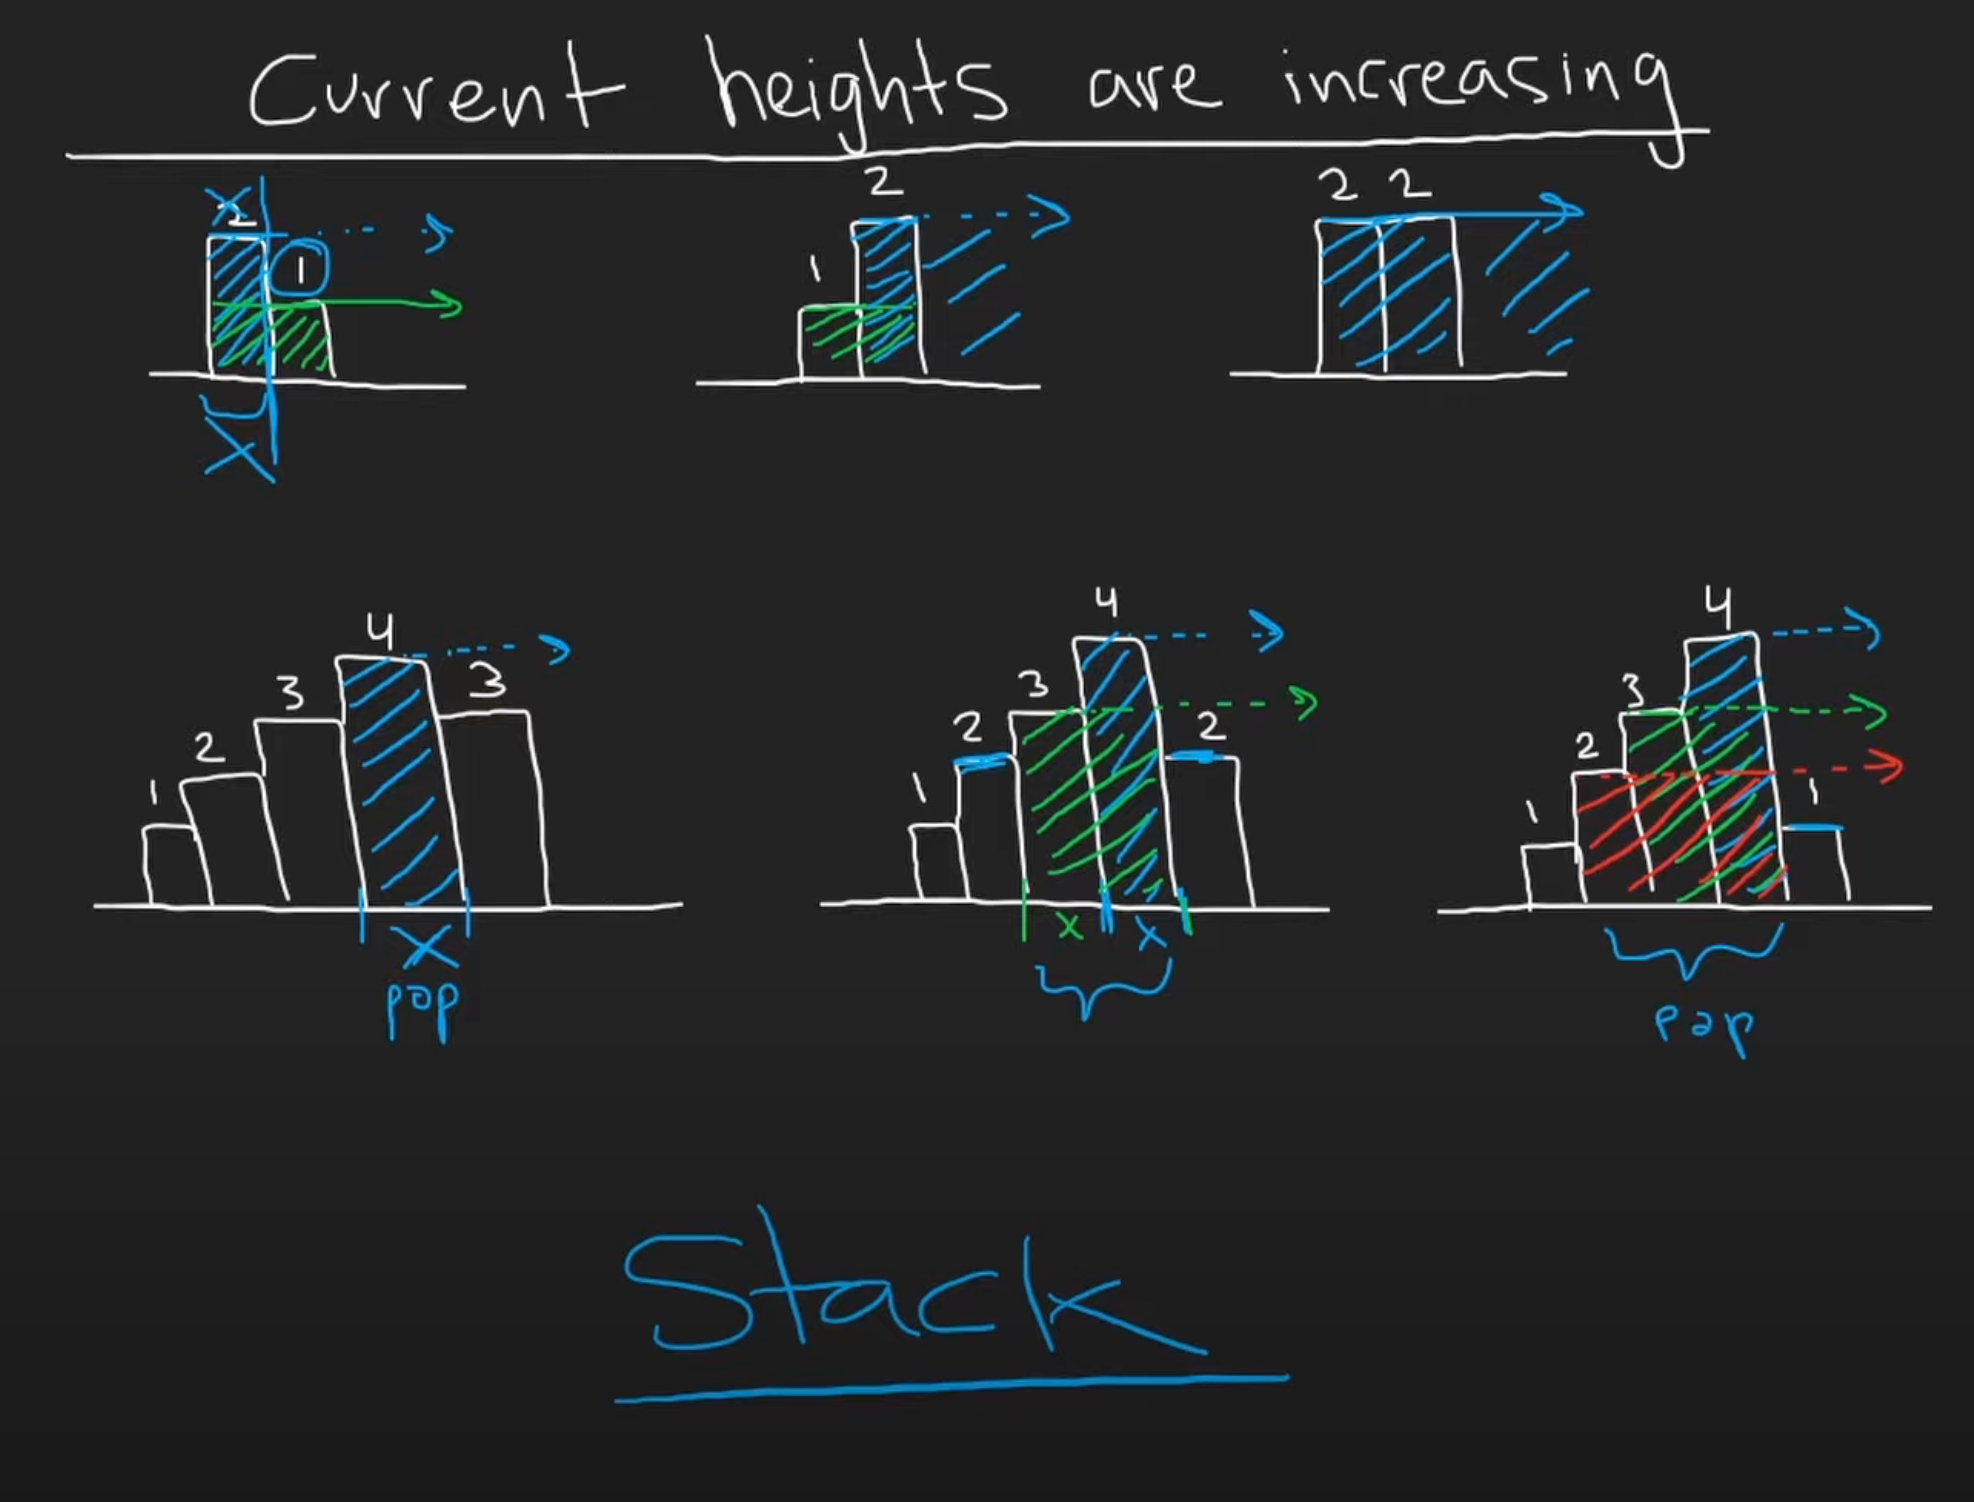 Current heights are increasing
X 2 1
1 2
2 2
X
1 2 3 4 3
X
pop
1 2 3 4 2
x x
1 2 3 4 1
pop
Stack